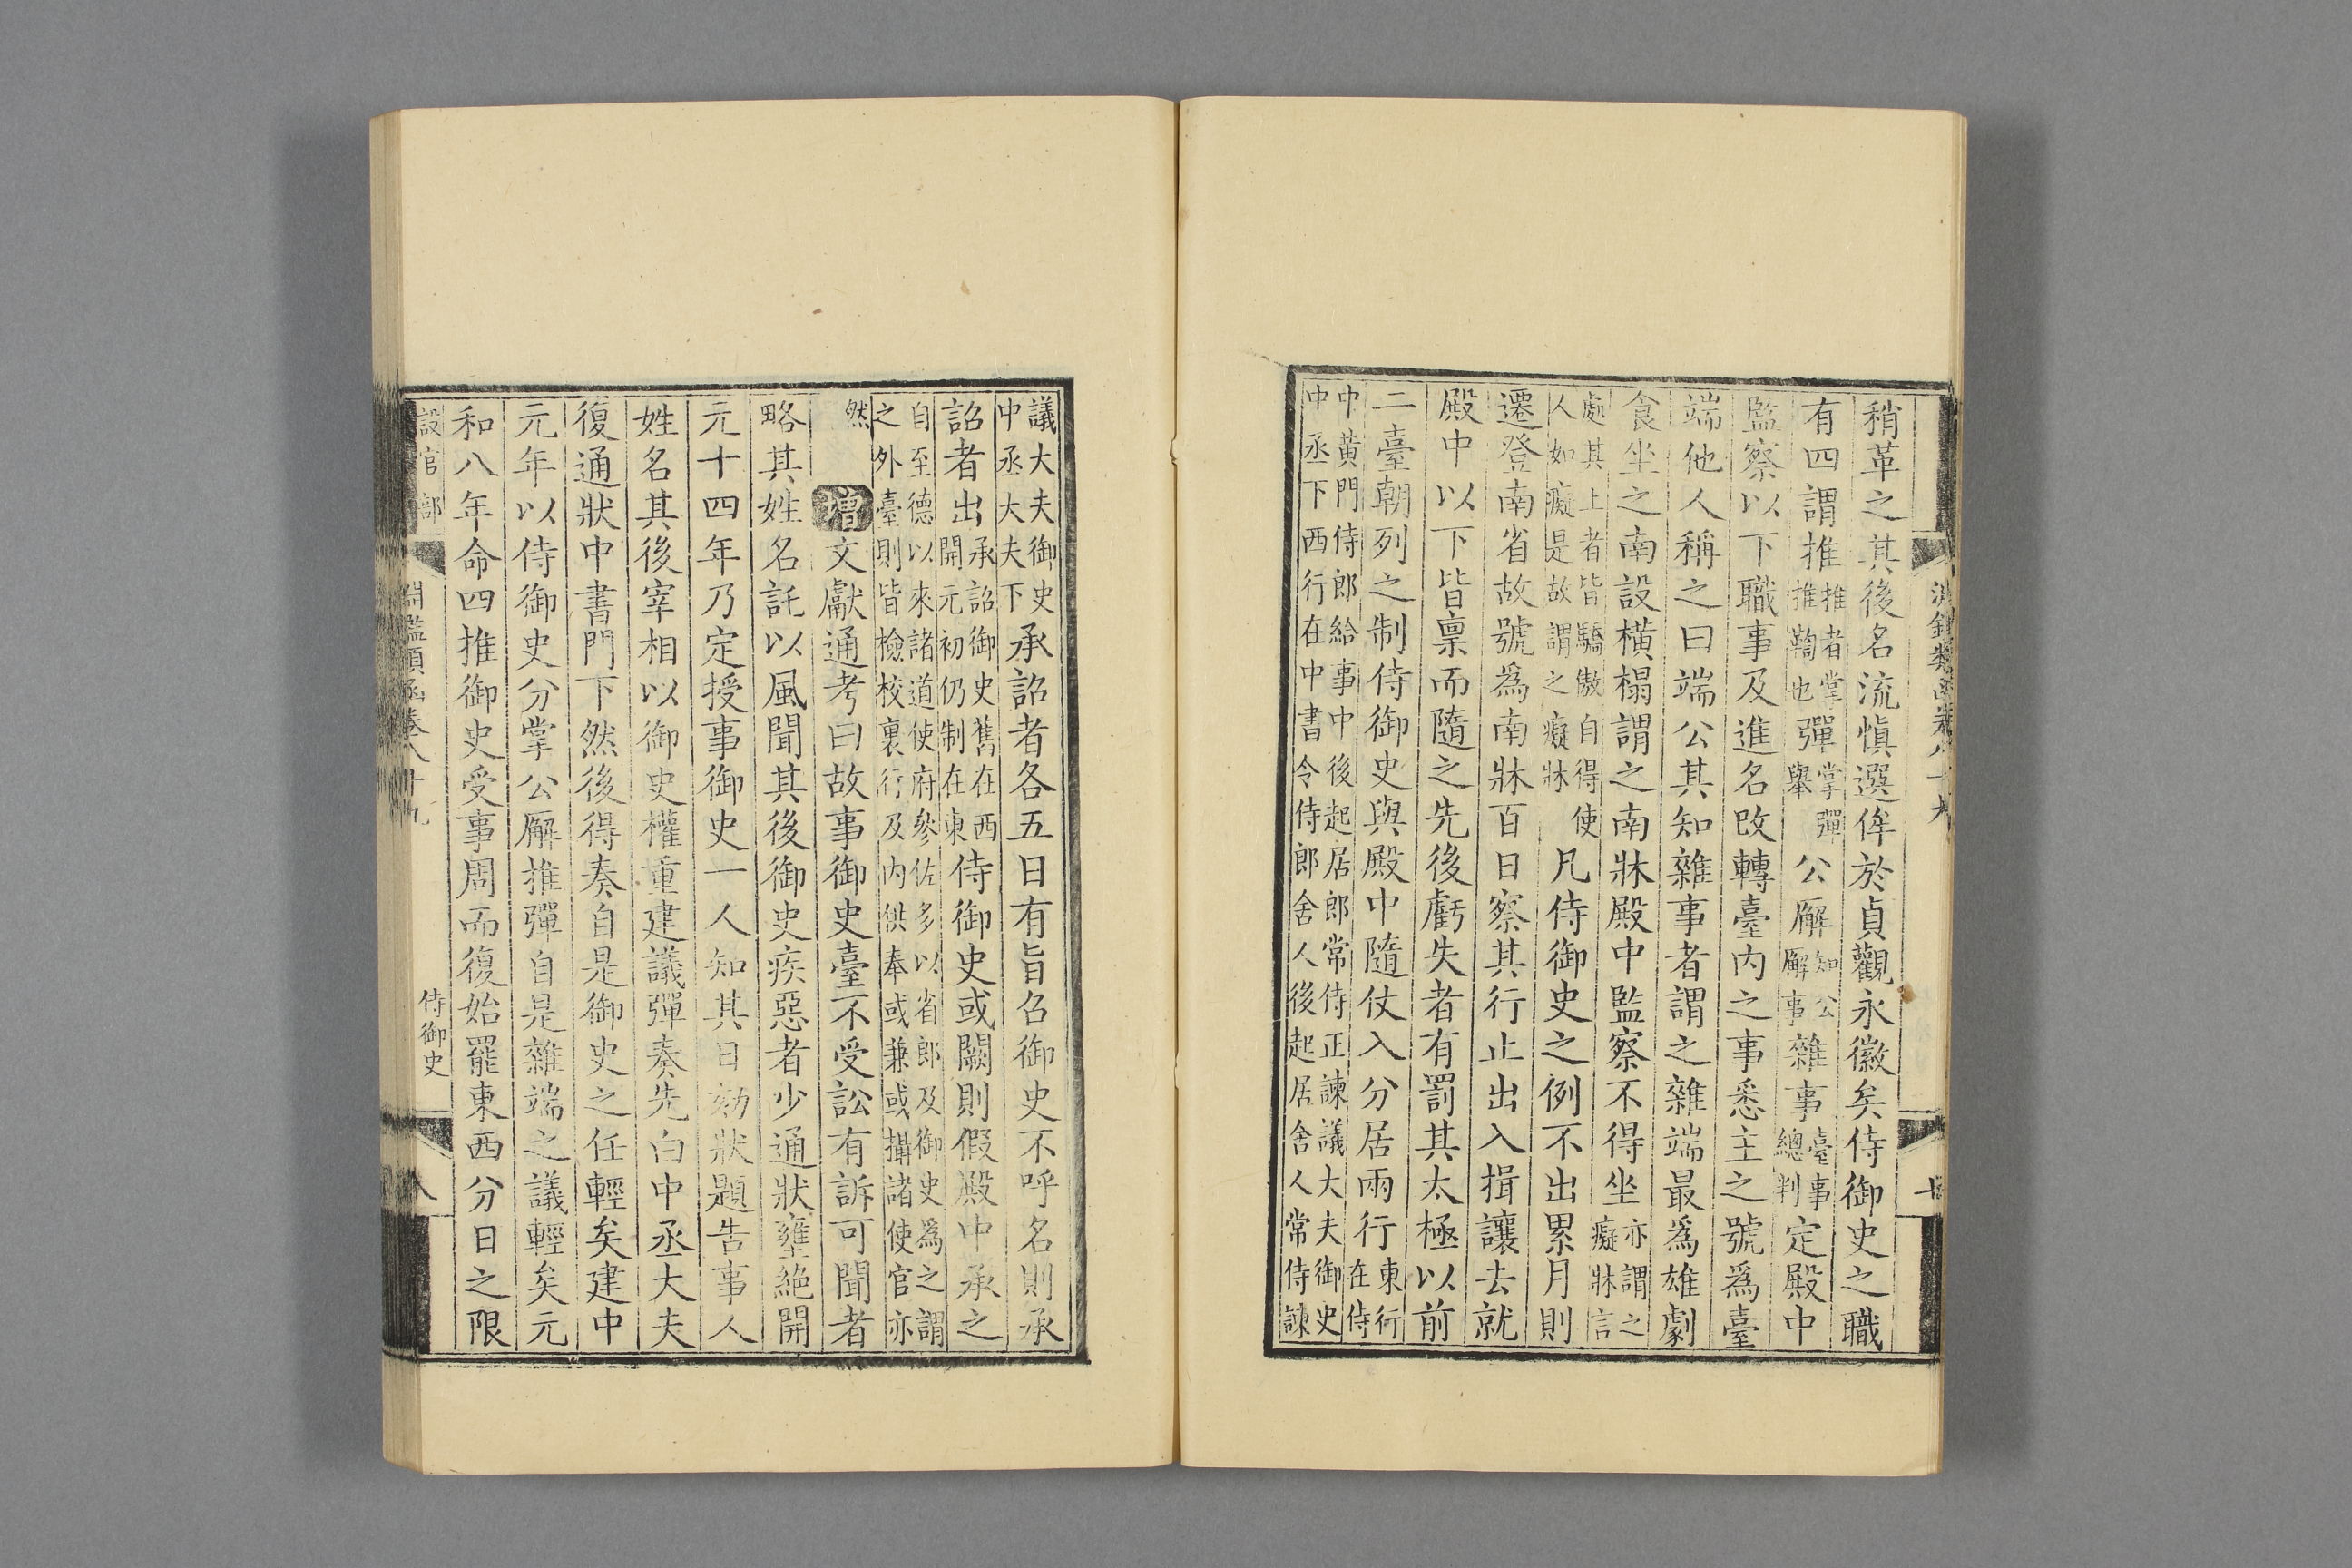 稍革之其後名流慎選侔於貞觀永徽矣侍御史之職
有四謂推推者掌推鞫也彈掌彈舉公廨知公廨事雜事臺事總判定殿中
監察以下職事及進名改轉臺內之事悉主之號爲臺
端他人稱之曰端公其知雜事者謂之雜端最爲雄劇
食坐之南設橫榻謂之南牀殿中監察不得坐亦謂之癡牀言
處其上者皆驕傲自得使人如癡是故謂之癡牀凡侍御史之例不出累月則
遷登南省故號爲南牀百日察其行止出入揖讓去就
殿中以下皆稟而隨之先後虧失者有罰其太極以前
二臺朝列之制侍御史與殿中隨仗入分居兩行東行在侍
中黃門侍郎給事中後起居郎常侍正諫議大夫御史
中丞下西行在中書令侍郎舍人後起居舍人常侍諫
議大夫御史中丞大夫下承詔者各五日有旨召御史不呼名則承
詔者出承詔御史舊在西開元初仍制在東侍御史或闕則假殿中承之
自至德以來諸道使府參佐多以省郎及御史爲之謂
之外臺則皆檢校裏行及內供奉或兼或攝諸使官亦
然增文獻通考曰故事御史臺不受訟有訴可聞者
略其姓名託以風聞其後御史疾惡者少通狀壅絕開
元十四年乃定授事御史一人知其日劾狀題告事人
姓名其後宰相以御史權重建議彈奏先白中丞大夫
復通狀中書門下然後得奏自是御史之任輕矣建中
元年以侍御史分掌公廨推彈自是雜端之議輕矣元
和八年命四推御史受事周而復始罷東西分日之限
設官部
淵鑑類函卷八十九
侍御史
八